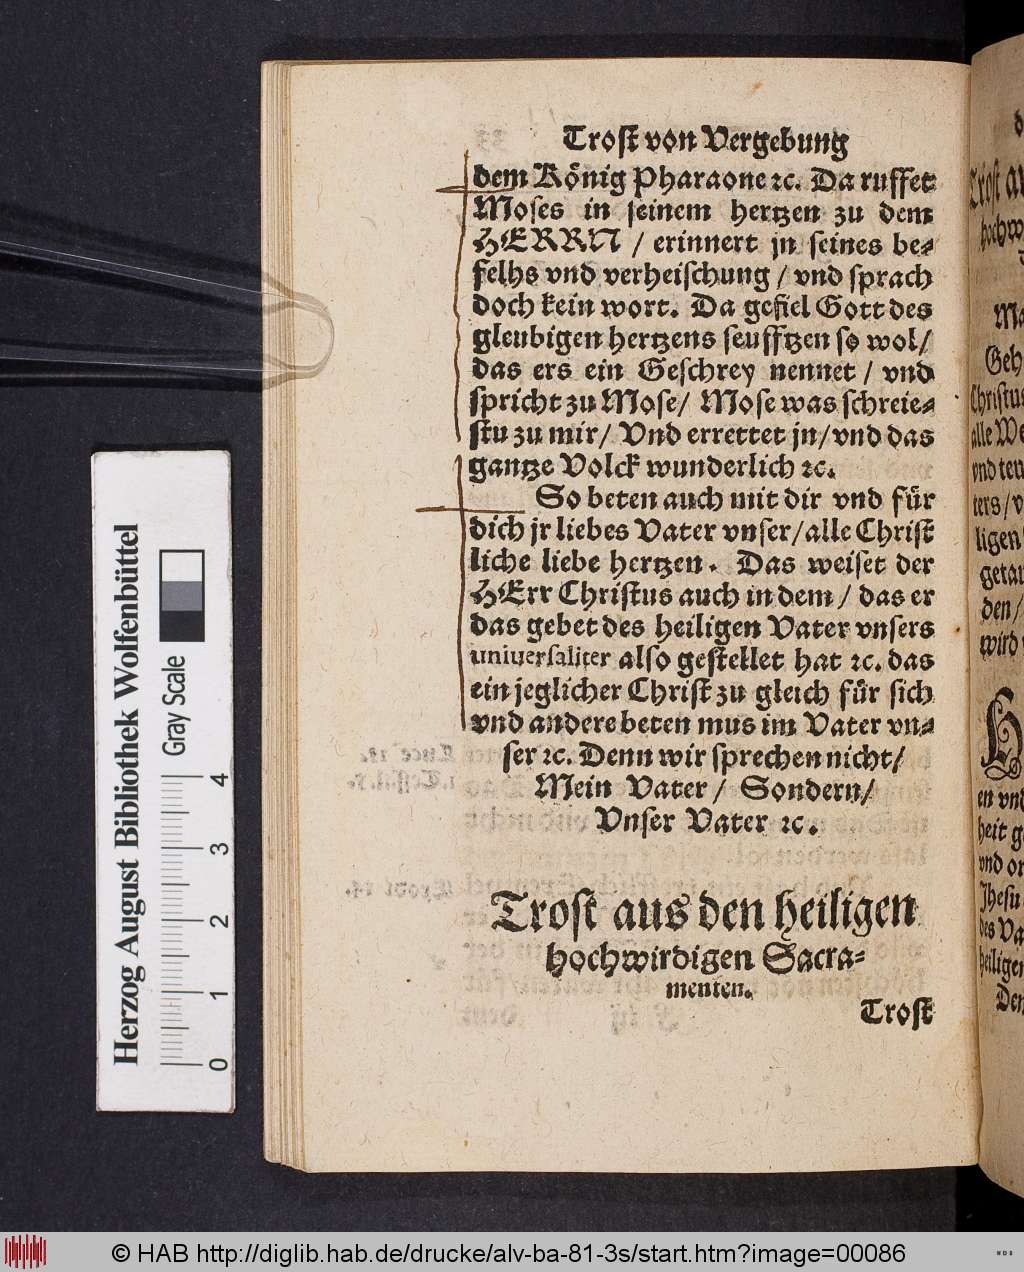 Trost von Vergebung
dem König Pharaone ꝛc. Da ruffet
Moses in seinem hertzen zu dem
HERRN / erinnert jn seines be⸗
felhs vnd verheischung / vnd sprach
doch kein wort. Da gefiel Gott des
gleubigen hertzens seufftzen so wol/
das ers ein Geschrey nennet / vnd
spricht zu Mose/ Mose was schreie⸗
stu zu mir/ Vnd errettet jn/vnd das
gantze Volck wunderlich ꝛc.
So beten auch mit dir vnd für
dich jr liebes Vater vnser/alle Christ
liche liebe hertzen. Das weiset der
HErr Christus auch in dem / das er
das gebet des heiligen Vater vnsers
uniuersaliter also gestellet hat ꝛc. das
ein jeglicher Christ zu gleich für sich
vnd andere beten mus im Vater vn⸗
ser ꝛc. Denn wir sprechen nicht/
Mein Vater / Sondern/
Vnser Vater ꝛc.
Trost aus den heiligen
hochwirdigen Sacra⸗
menten.
Trost
Herzog August Bibliothek Wolfenbüttel
Gray Scale
0 1 2 3 4
© HAB http://diglib.hab.de/drucke/alv-ba-81-3s/start.htm?image=00086